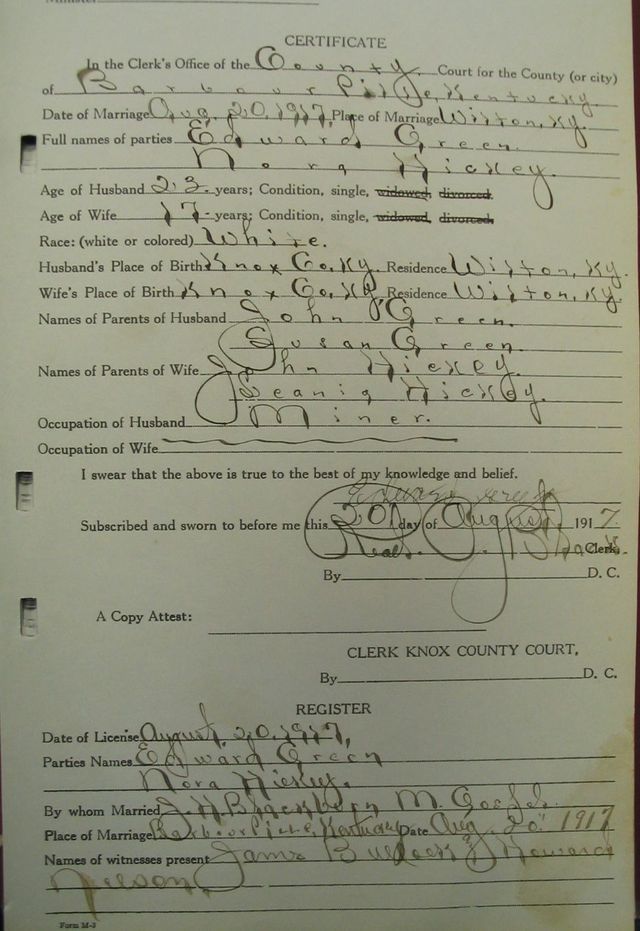 CERTIFICATE
In the Clerk's Office of the County Court for the County (or city)
of Barbourville, Kentucky.
Date of Marriage Aug. 20, 1917, Place of Marriage Wilton, Ky.
Full names of parties Edward Green.
Nora Hickey.
Age of Husband 23. years; Condition, single, widowed, divorced.
Age of Wife 17- years; Condition, single, widowed, divorced.
Race: (white or colored) White.
Husband's Place of Birth Knox Co. Ky. Residence Wilton, Ky.
Wife's Place of Birth Knox Co. Ky. Residence Wilton, Ky.
Names of Parents of Husband John Green.
Susan Green
Names of Parents of Wife John Hickey.
Hickey.
Occupation of Husband Miner.
Occupation of Wife
I swear that the above is true to the best of my knowledge and belief.
Edward Green
Subscribed and sworn to before me this 20, day of August, 1917
Clerk.
By D. C.
A Copy Attest:
CLERK KNOX COUNTY COURT,
By D. C.
REGISTER
Date of License August 20, 1917,
Parties Names Edward Green
Nora Hickey.
By whom Married J. H. Blackburn M. Gospel.
Place of Marriage Barbourville, Kentucky Date Aug. 20" 1917
Names of witnesses present James Bullock & Howard
Nelson
Form M-3